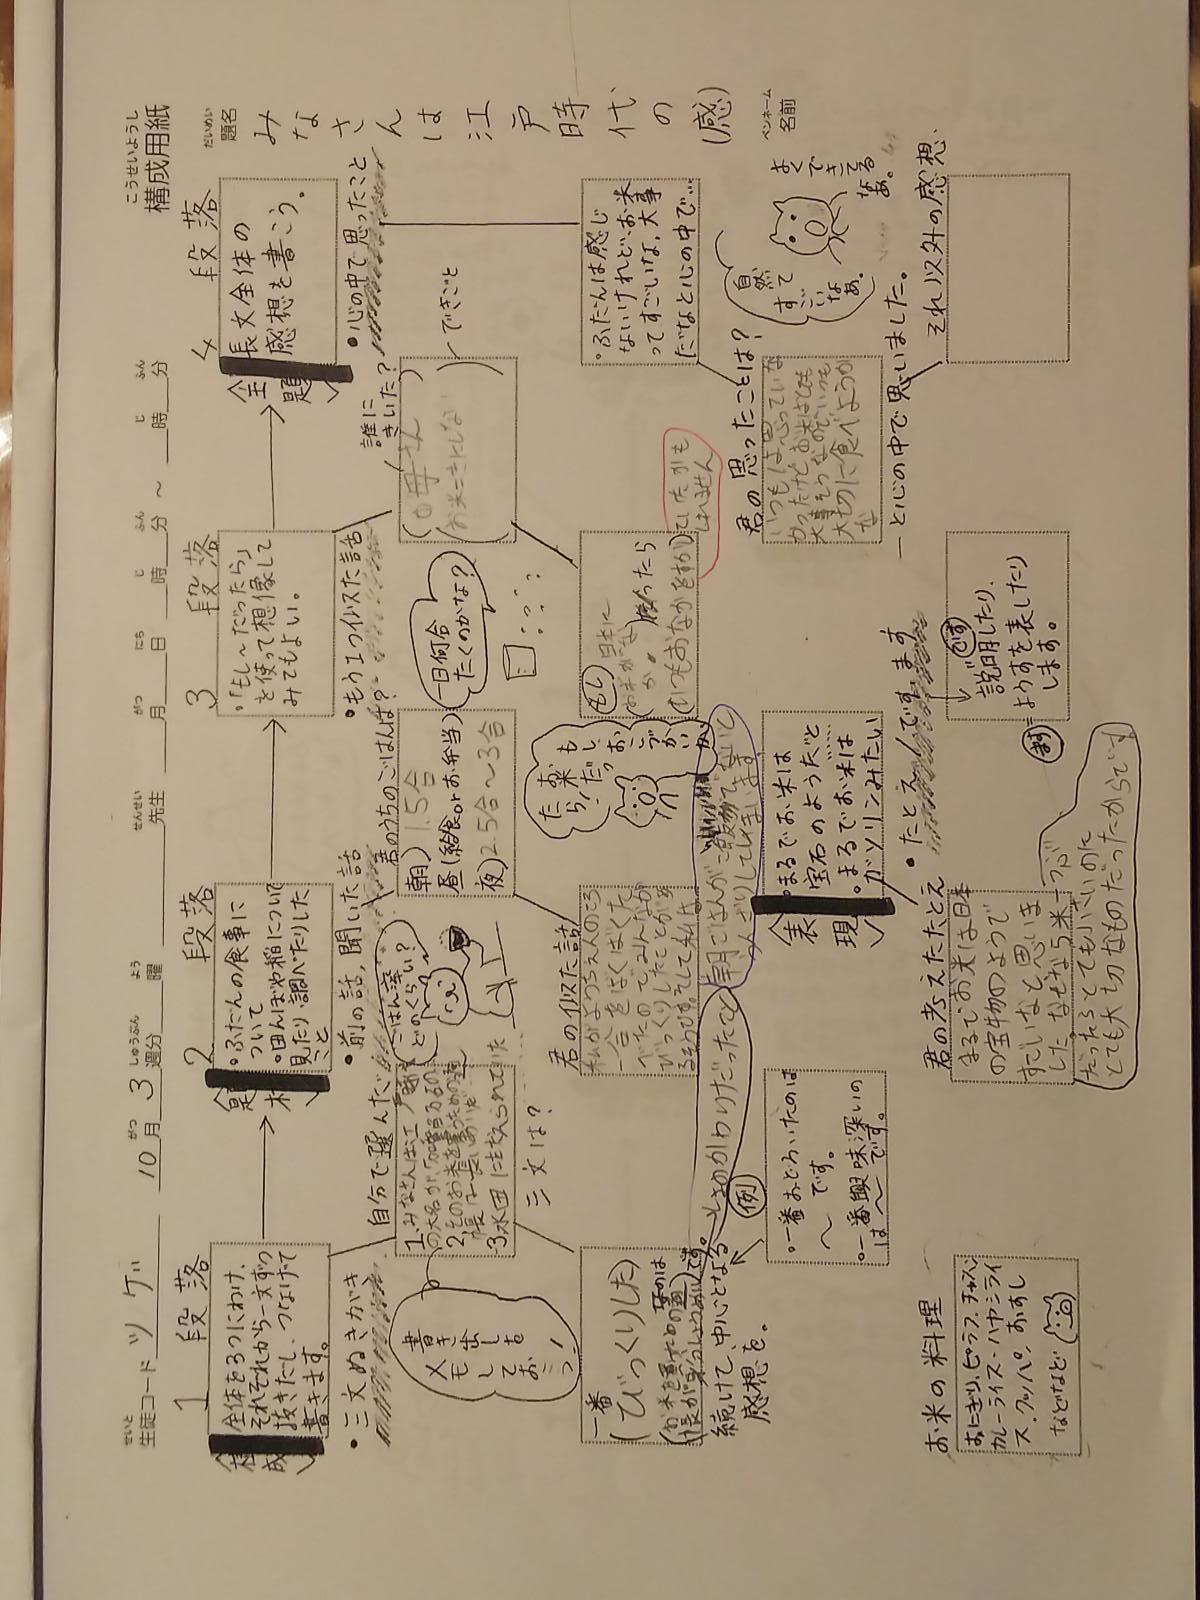 こうせいようし
構成用紙
だいめい
題名
みなさんは江戸時代の(感)
ペンネーム
名前
せいと
生徒コード ツゲ
10月3週分
がつ しゅうぶん
よう
曜
せんせい
先生
がつ にち
月 日
じ ふん じ ふん
時 分 ~ 時 分
1段落
〈構成〉
全体を3つにわけ、
それぞれから一文ずつ
抜きだし、つなげて
書きます。
・三文ぬきがき
自分で選んだ
三文は?
書き出しを
メモして
おこう!
1.みなさんは江戸時
の大名が「加賀百万石の
3.水田にたくわえられていた
一番
(びっくりした)
のは
です。
続けて、中心となる
感想を。
例
・一番おどろいたのは
~です。
・一番興味深いの
は~です。
お米の料理
おにぎり、ピラフ、チャーハン
カレーライス・ハヤシライ
ス、クッパ、おすし
などなど
2段落
〈題材〉
・ふだんの食事に
ついて
・田んぼや稲について
見たり、調べたりした
こと
・前の話,聞いた話
ごはん茶
どのくらい?
君のうちのごはんは?
朝)1.5合
昼(給食orお弁当)
夜)2.5合~3合
君の似た話
私がようち
一合をぱくぱくた
べたのでみんなが
びっくりしたことがあ
るそうです。そして私は
とさのかわりだったこと
朝ごはんがご飯でないと
がっかりしてしまいます。
もし
お米が
おこづかい
だったら!
〈表現〉
・まるでお米は
宝石のようだ
・まるでお米は
ガソリンみたい
・たとえ/です、ます
君の考えたたとえ
まるでお米は日本
の宝物のようで
すごいなと思いま
した。なぜなら米一つぶ
だったらとても小いいのに
とても大切なものだったからです
3段落
・「もし~だったら」
を使って想像して
みてもよい。
・もう1つ似た話
一日何合
たくのかな?
誰に
きいた?
(お母さん)
できごと
もし
日本に
お米がな
勝ったら
いつもおなかをすかし
ていたかも
しれません
です
説明したり、
ます
ようすを表したり
します。
4段落
〈全題〉
長文全体の
感想を書こう。
・心の中で思ったこと
・ふだんは感じ
ないけれど、お米
ってすごいな、大事
だなと心の中で…
君の思ったことは?
いつもは思っていな
かったけどお米はとても
大事そうなのでいつも
大切に食べようか
な
―と心の中で思いました。
自然
って
すごい
なぁ。
よく
できてる
なぁ。
それ以外の感想、